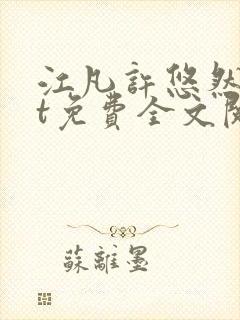 江凡許悠然
t免費全文
蘇離墨